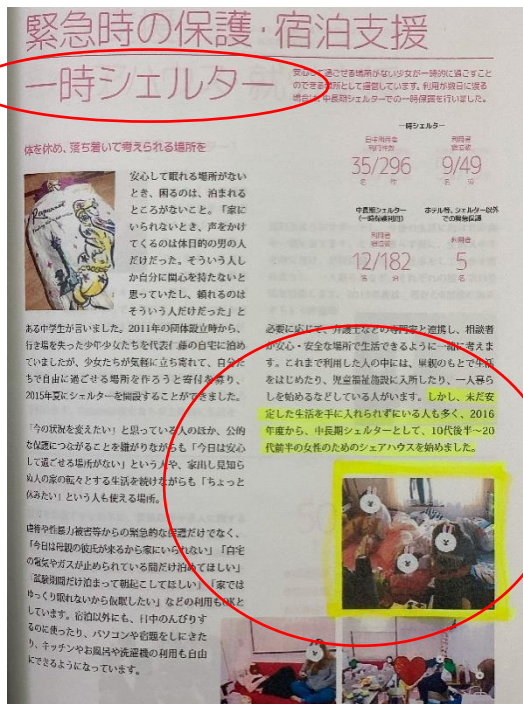 緊急時の保護・宿泊支援
一時シェルター
安心して過ごせる場所がない少女が一時的に過ごすこと
のできる場所として運営しています。利用が数日に渡る
場合は、中長期シェルターでの一時保護を行いました。
体を休め、落ち着いて考えられる場所を
安心して眠れる場所がない
とき、困るのは、泊まれる
ところがないこと。「家に
いられないとき、声をかけ
てくるのは体目的の男の人
だけだった。そういう人し
か自分に関心を持たないと
思っていたし、頼れるのは
そういう人だけだった」と
ある中学生が言いました。2011年の団体設立時から、
行き場を失った少年少女たちを代表仁藤の自宅に泊め
ていましたが、少女たちが気軽に立ち寄れて、自分た
ちで自由に過ごせる場所を作ろうと寄付を募り、
2015年夏にシェルターを開設することができました。
「今の状況を変えたい」と思っている人のほか、公的
な保護につながることを嫌がりながらも「今日は安心
して過ごせる場所がない」という人や、家出し見知ら
ぬ人の家の転々とする生活を続けながらも「ちょっと
休みたい」という人も使える場所。
虐待や性暴力被害等からの緊急的な保護だけでなく、
「今日は母親の彼氏が来るから家にいられない」「自宅
の電気やガスが止められている間だけ泊めてほしい」
「試験期間だけ泊まって朝起こしてほしい」「家では
ゆっくり眠れないから仮眠したい」などの利用もOKと
しています。宿泊以外にも、日中のんびりす
るのに使ったり、パソコンや宿題をしにきた
り、キッチンやお風呂や洗濯機の利用も自由
にできるようになっています。
一時シェルター
35/296
名
9/49
名
中長期シェルター
(一時保護利用)
ホテル等、シェルター以外
での緊急保護
利用者
利用者
12/182
名
5
名
必要に応じて、弁護士などの専門家と連携し、相談者
が安心・安全な場所で生活できるように一緒に考えま
す。これまで利用した人の中には、里親のもとで生活
をはじめたり、児童福祉施設に入所したり、一人暮ら
しを始めるなどしている人がいます。しかし、未だ安
定した生活を手に入れられずにいる人も多く、2016
年度から、中長期シェルターとして、10代後半〜20
代前半の女性のためのシェアハウスを始めました。